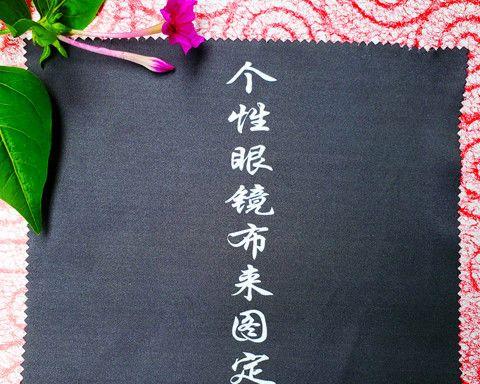 个性眼镜布来图定